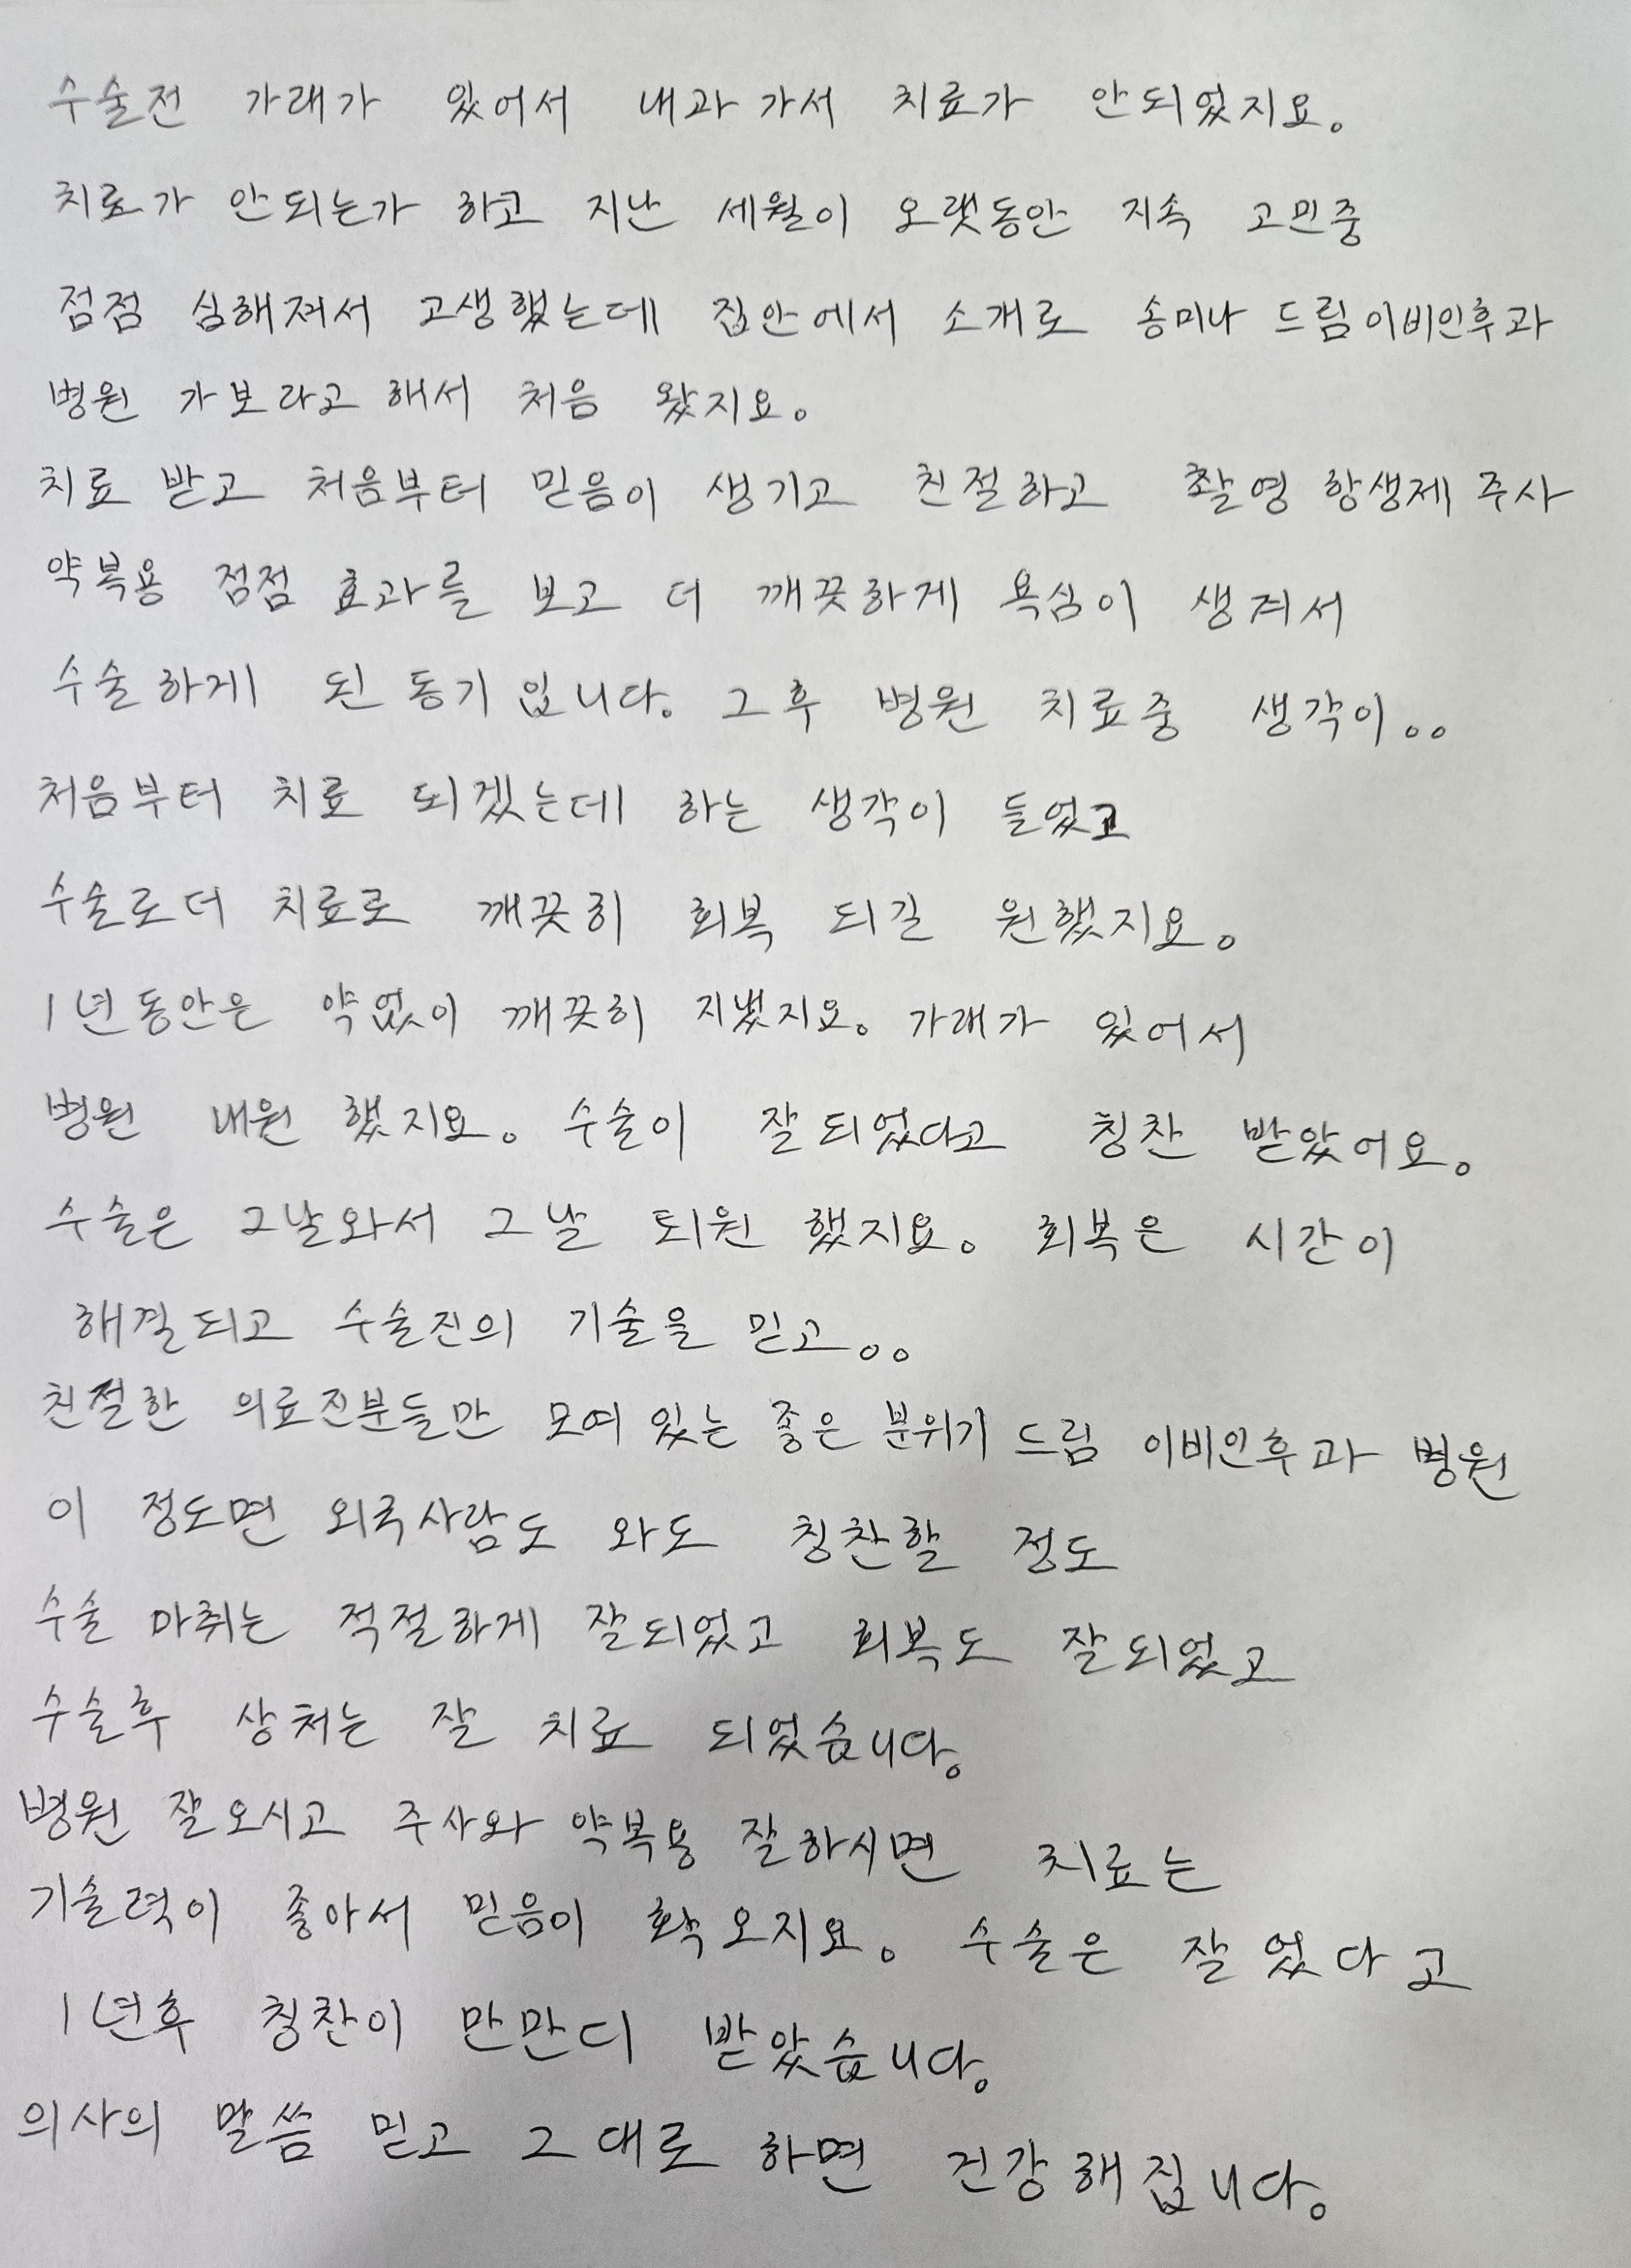 수술전 가래가 있어서 내과 가서 치료가 안되었지요.
치료가 안되는가 하고 지난 세월이 오랫동안 지속 고민중
점점 심해져서 고생했는데 집안에서 소개로 송미나 드림이비인후과
병원 가보라고 해서 처음 왔지요.
치료 받고 처음부터 믿음이 생기고 친절하고 촬영 항생제 주사
약복용 점점 효과를 보고 더 깨끗하게 욕심이 생겨서
수술하게 된 동기입니다. 그후 병원 치료중 생각이..
처음부터 치료 되겠는데 하는 생각이 들었고
수술로더 치료로 깨끗히 회복 되길 원했지요.
1년동안은 약없이 깨끗히 지냈지요. 가래가 있어서
병원 내원 했지요. 수술이 잘되었다고 칭찬 받았어요.
수술은 그날와서 그날 퇴원 했지요. 회복은 시간이
해결되고 수술진의 기술을 믿고..
친절한 의료진분들만 모여있는 좋은 분위기 드림 이비인후과 병원
이 정도면 외국사람도 와도 칭찬할 정도
수술 마취는 적절하게 잘되었고 회복도 잘되었고
수술후 상처는 잘 치료 되었습니다.
병원 잘오시고 주사와 약복용 잘하시면 치료는
기술력이 좋아서 믿음이 확 오지요. 수술은 잘 었다고
1년후 칭찬이 만만디 받았습니다.
의사의 말씀 믿고 그대로 하면 건강해집니다.